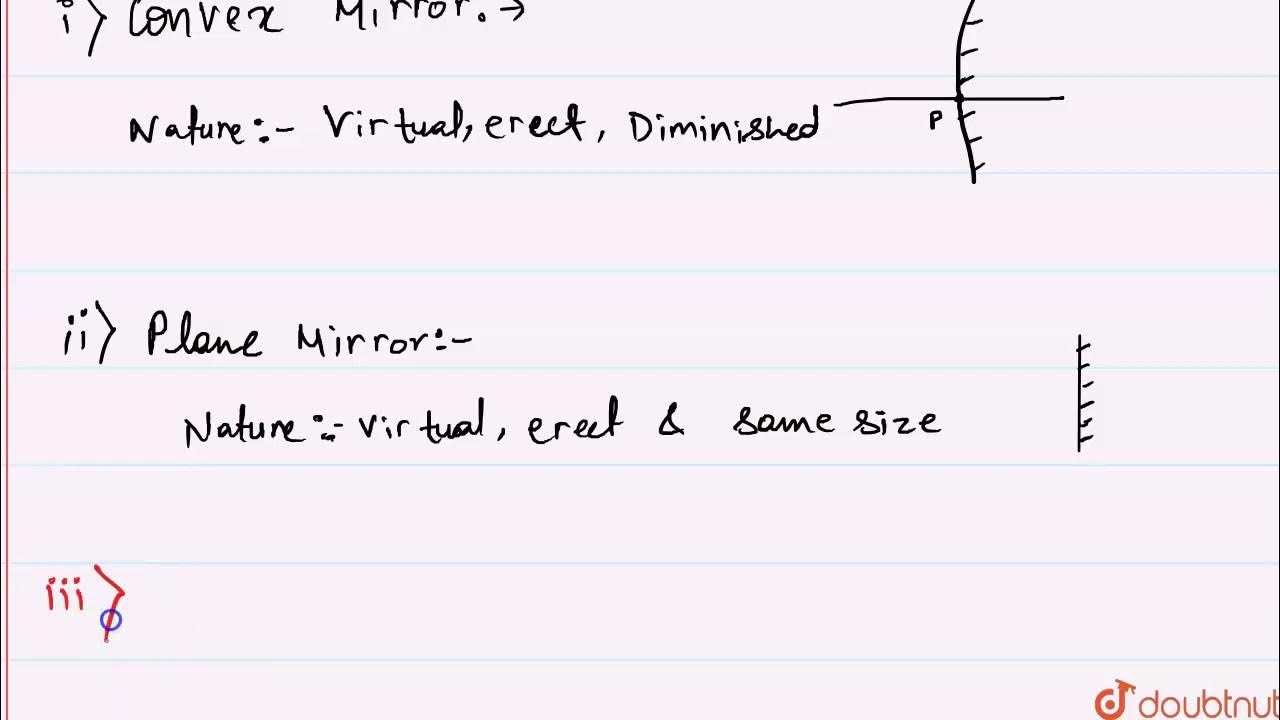 i) Convex Mirror:→
Nature:- Virtual, erect, Diminished
P
ii) Plane Mirror:-
Nature:- virtual, erect & same size
iii)
doubtnut